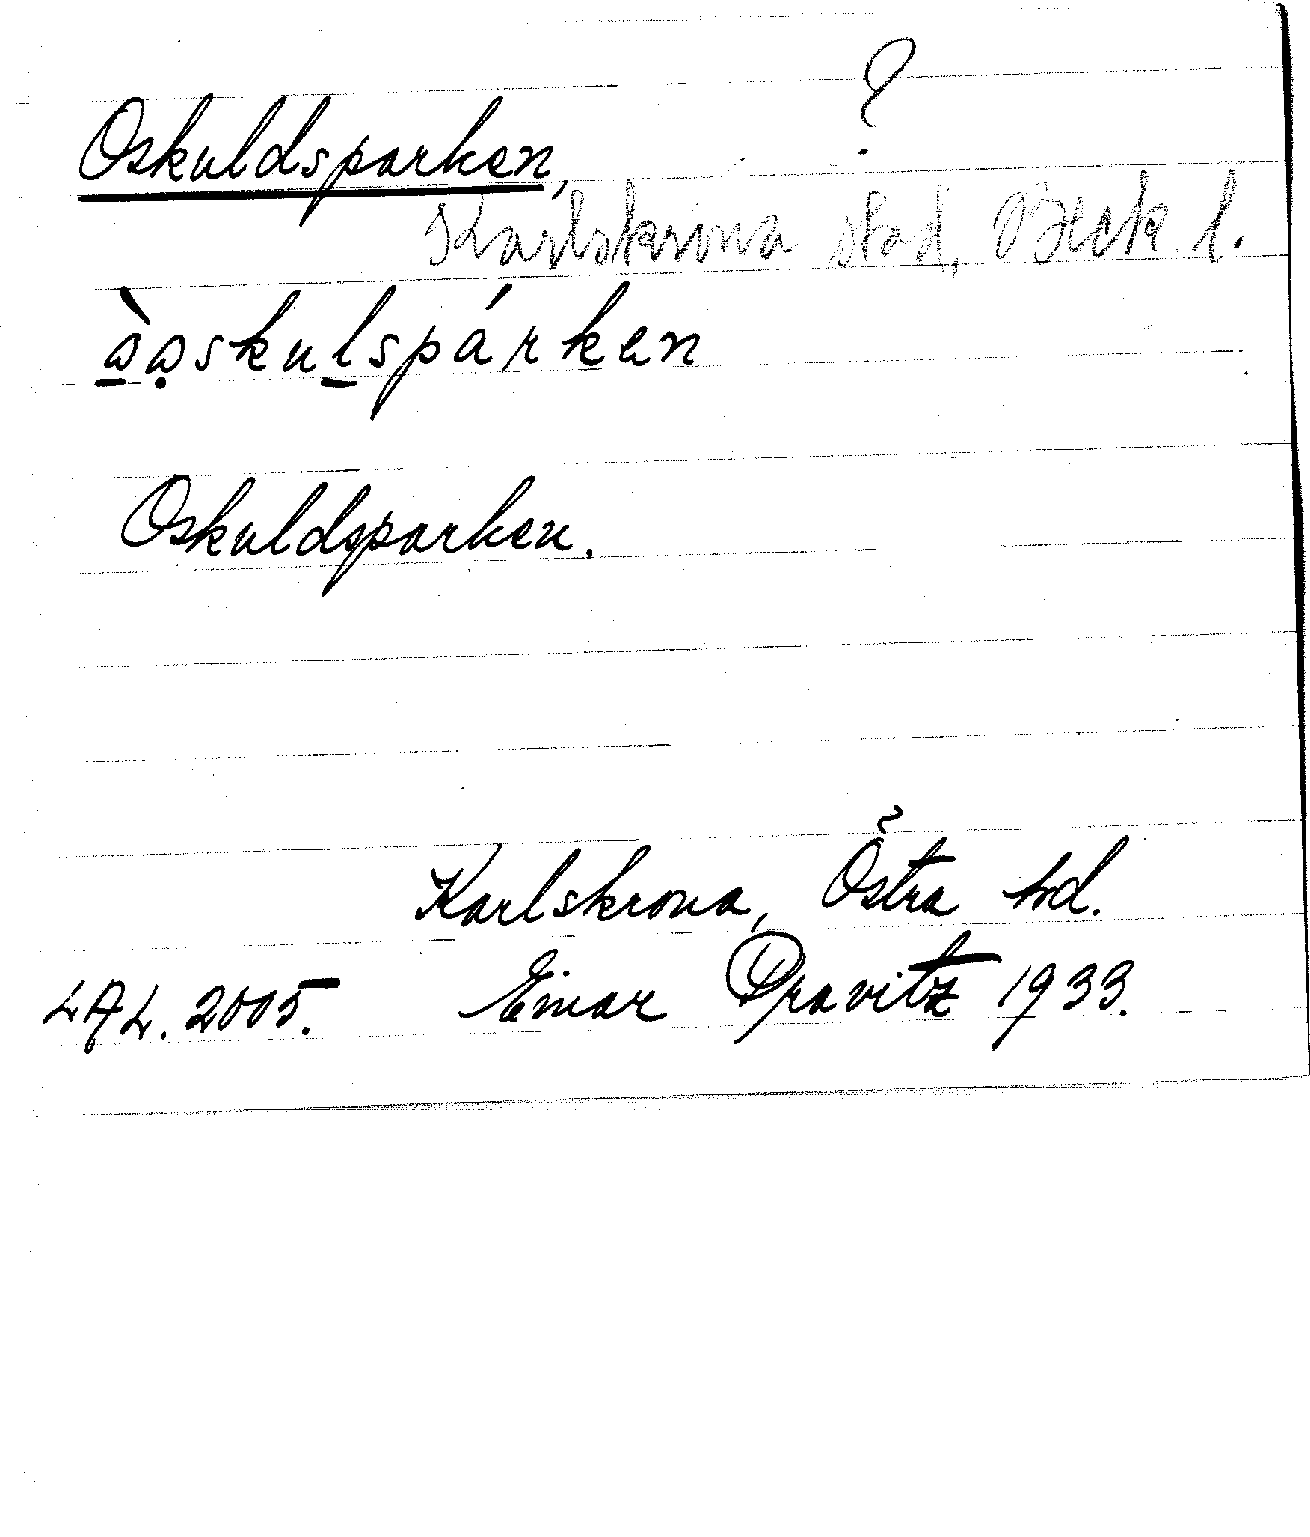 ?
Oskuldsparken,
Karlskrona stad, Blek l.
òo̤skulspárken
Oskuldsparken.
Karlskrona, Östra hd.
LAL. 2005. Einar Pravitz 1933.